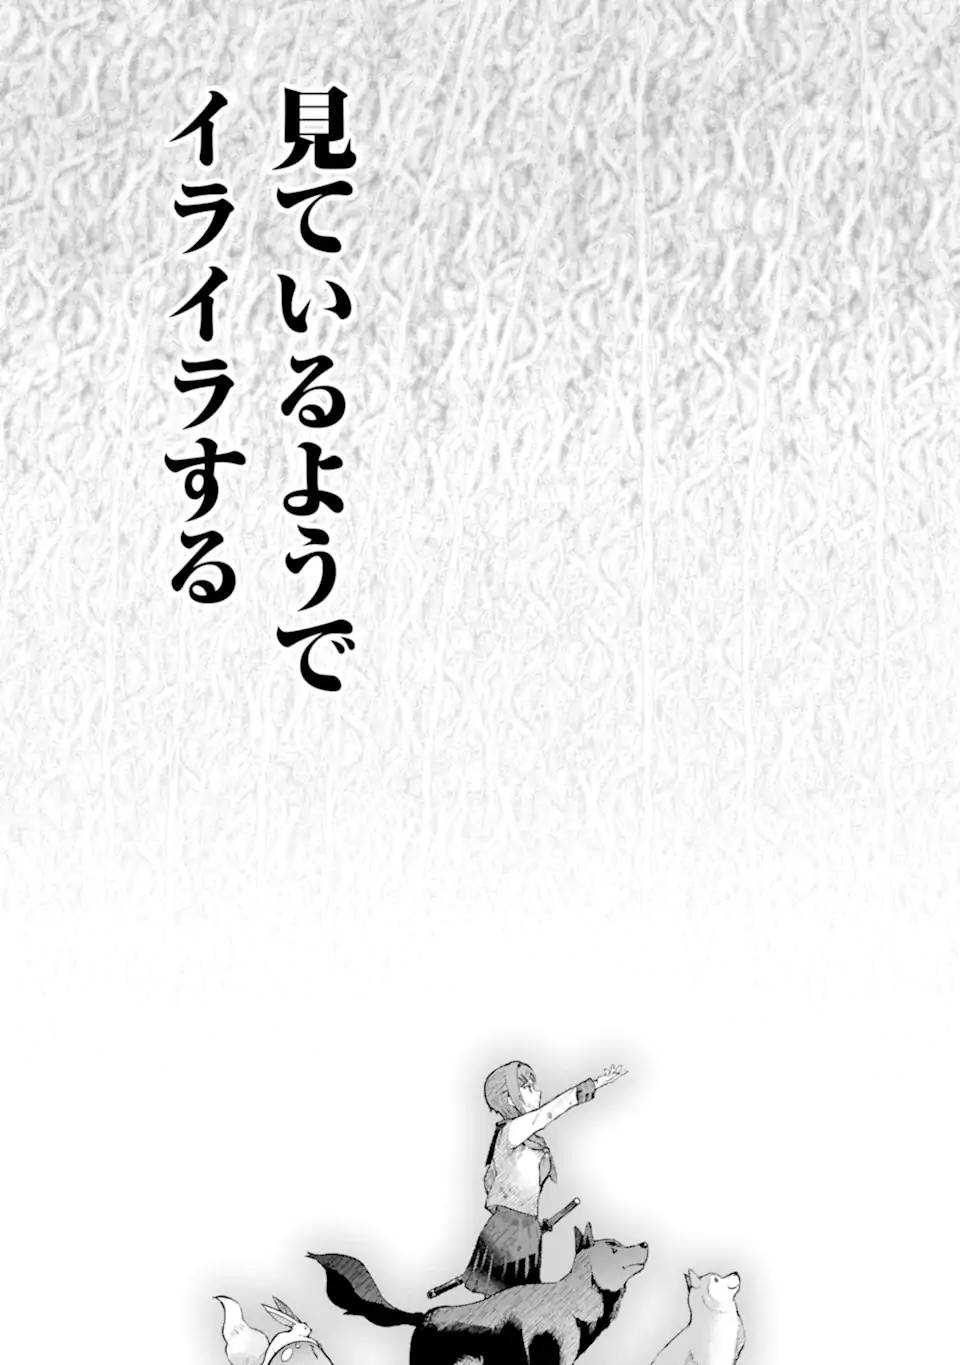 見ているようで
イライラする